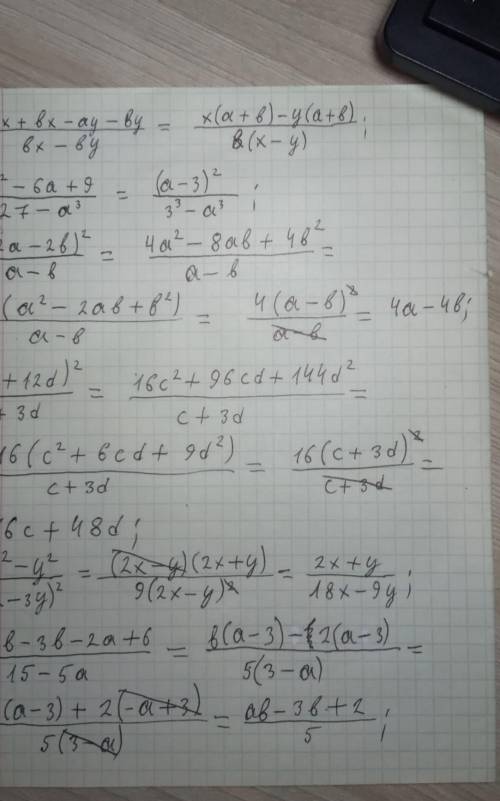 x + вx - ay - вy / вx - вy = x(a + в) - y(a + в) / в(x - y) ;
² - 6a + 9 / 27 - a³ = (a - 3)² / 3³ - a³ ;
2a - 2в)² / a - в = 4a² - 8aв + 4в² / a - в =
(a² - 2aв + в²) / a - в = 4(a - в)² / a - в = 4a - 4в;
+ 12d)² / + 3d = 16c² + 96cd + 144d² / c + 3d =
16(c² + 6cd + 9d²) / c + 3d = 16(c + 3d)² / c + 3d =
16c + 48d;
² - y² / - 3y)² = (2x - y)(2x + y) / 9(2x - y)² = 2x + y / 18x - 9y ;
в - 3в - 2a + 6 / 15 - 5a = в(a - 3) - 2(a - 3) / 5(3 - a) =
(a - 3) + 2(-a + 3) / 5(3 - a) = aв - 3в + 2 / 5 ;